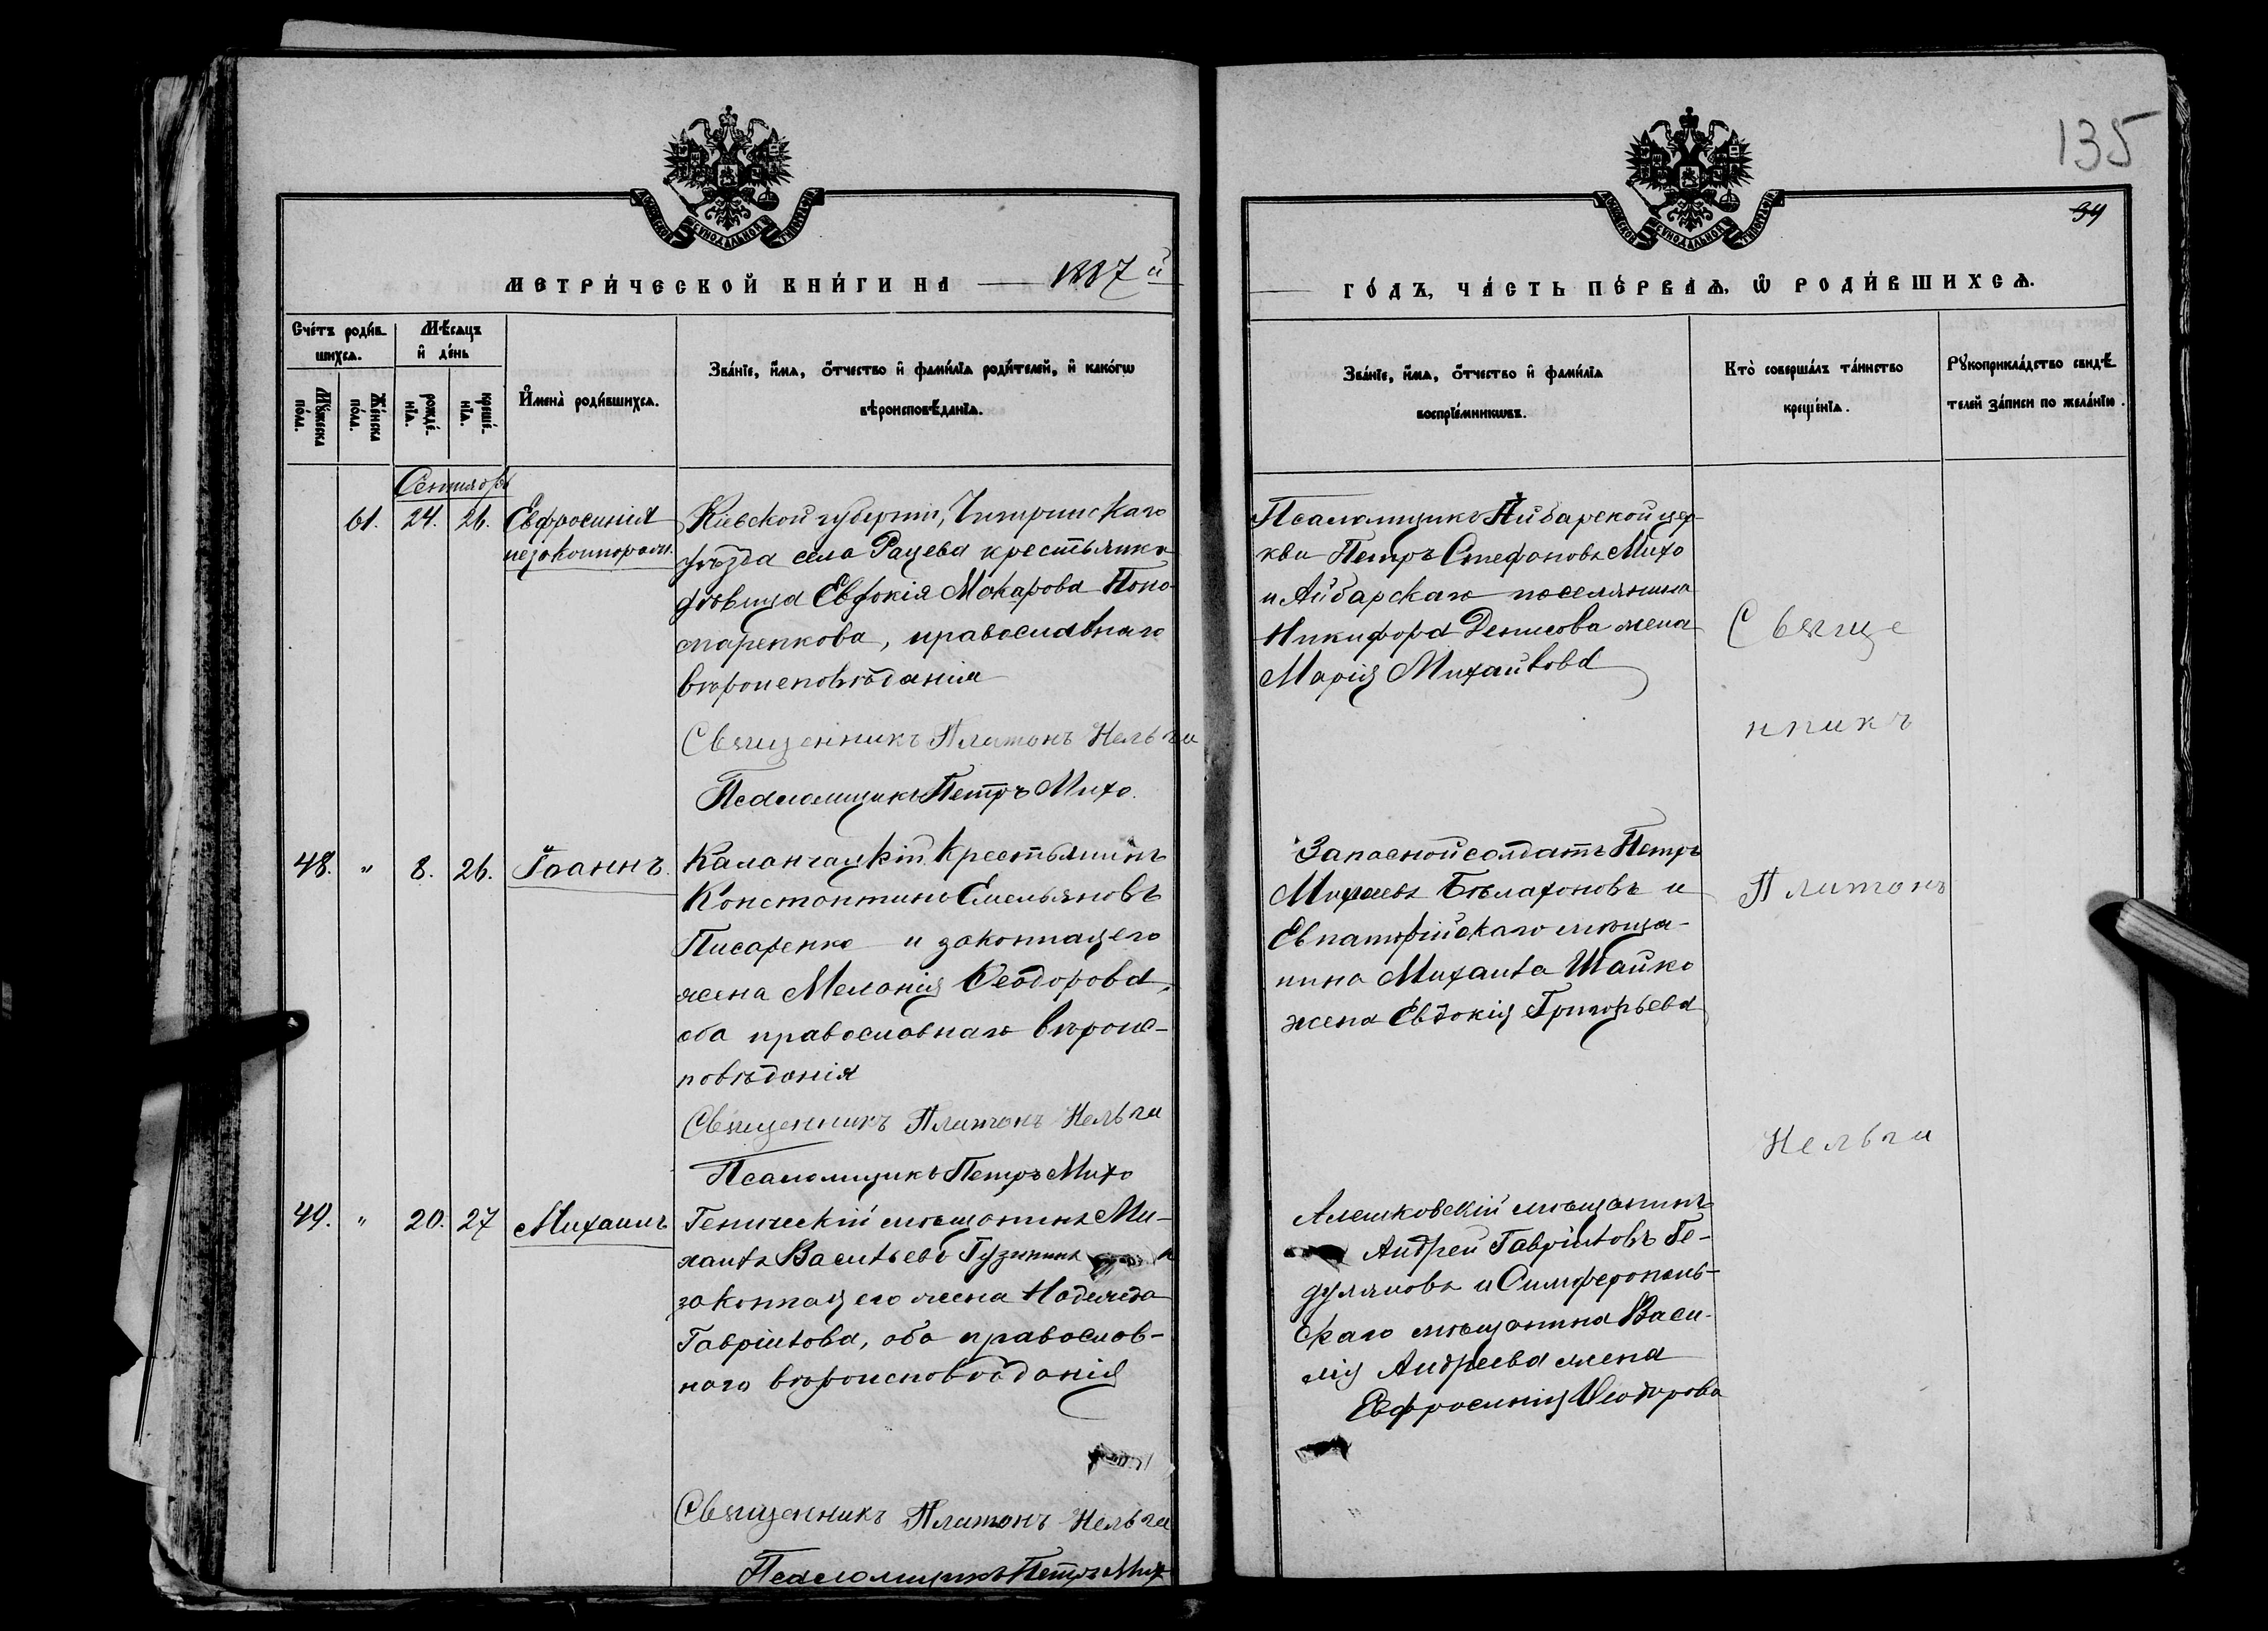 135
34
МЕТРИ́ЧЕСКОЙ КНИ́ГИ НА 1887 й
ГО́ДЪ, ЧА́СТЬ ПЕ́РВАѦ, Ѡ РОДИ́ВШИХСѦ.
Сче́тъ роди́в-
шихсѧ.
Мꙋ́жеска по́ла.
Же́нска по́ла.
Мѣ́сѧцъ
и҆ де́нь
рожде́-
нїѧ.
креще́-
нїѧ.
И҆мена̀ роди́вшихсѧ.
Зва́нїе, и҆́мѧ, ѻ҆́тчество и҆ фами́лїѧ роди́телей, и҆ како́гѡ
вѣроисповѣ́данїѧ.
Зва́нїе, и҆́мѧ, ѻ҆́тчество и҆ фами́лїѧ
воспрїе́мникѡвъ.
Кто̀ соверша́лъ та́инство
креще́нїѧ.
Рꙋкоприкла́дство свидѣ́-
телей за́писи по жела́нїю.
Сентябрь
61. 24. 26. Евфросинія
незаконнорожд.
Кіевской губерніи, Чигринскаго
уѣзда села Рацева крестьянка
дѣвица Евдокія Макарова Поно-
маренкова, православнаго
вѣроисповѣданія
Священникъ Платонъ Нельга
Псаломщикъ Петръ Михо.
Псаломщикъ Айбарской цер-
кви Петръ Стефановъ Михо
и Айбарскаго поселянина
Никифора Денисова жена
Марія Михайлова
Свяще
нникъ
48. " 8. 26. Іоаннъ.
Каланчацкій крестьянинъ
Константинъ Емельяновъ
Писаренко и законная его
жена Меланія Ѳеодорова,
оба православнаго вѣроис-
повѣданія
Священникъ Платонъ Нельга
Псаломщикъ Петръ Михо
Запасной солдатъ Петръ
Бѣлахоновъ и
Евпаторійскаго мѣща-
нина Михаила Шайко
жена Евдокія Григорьева
Платонъ
Нельга
49. " 20. 27 Михаилъ
Геническій мѣщанинъ Ми-
хаилъ Васильевъ и
законная его жена Надежда
Гавріилова, оба православ-
наго вѣроисповѣданія
Священникъ Платонъ Нельга
Псаломщикъ Петръ Михо
Алешковскій мѣщанинъ
Андрей Гавріиловъ Ге-
дуляновъ и Симферополь-
скаго мѣщанина Васи-
лія Андреева жена
Евфросинія Ѳеодорова